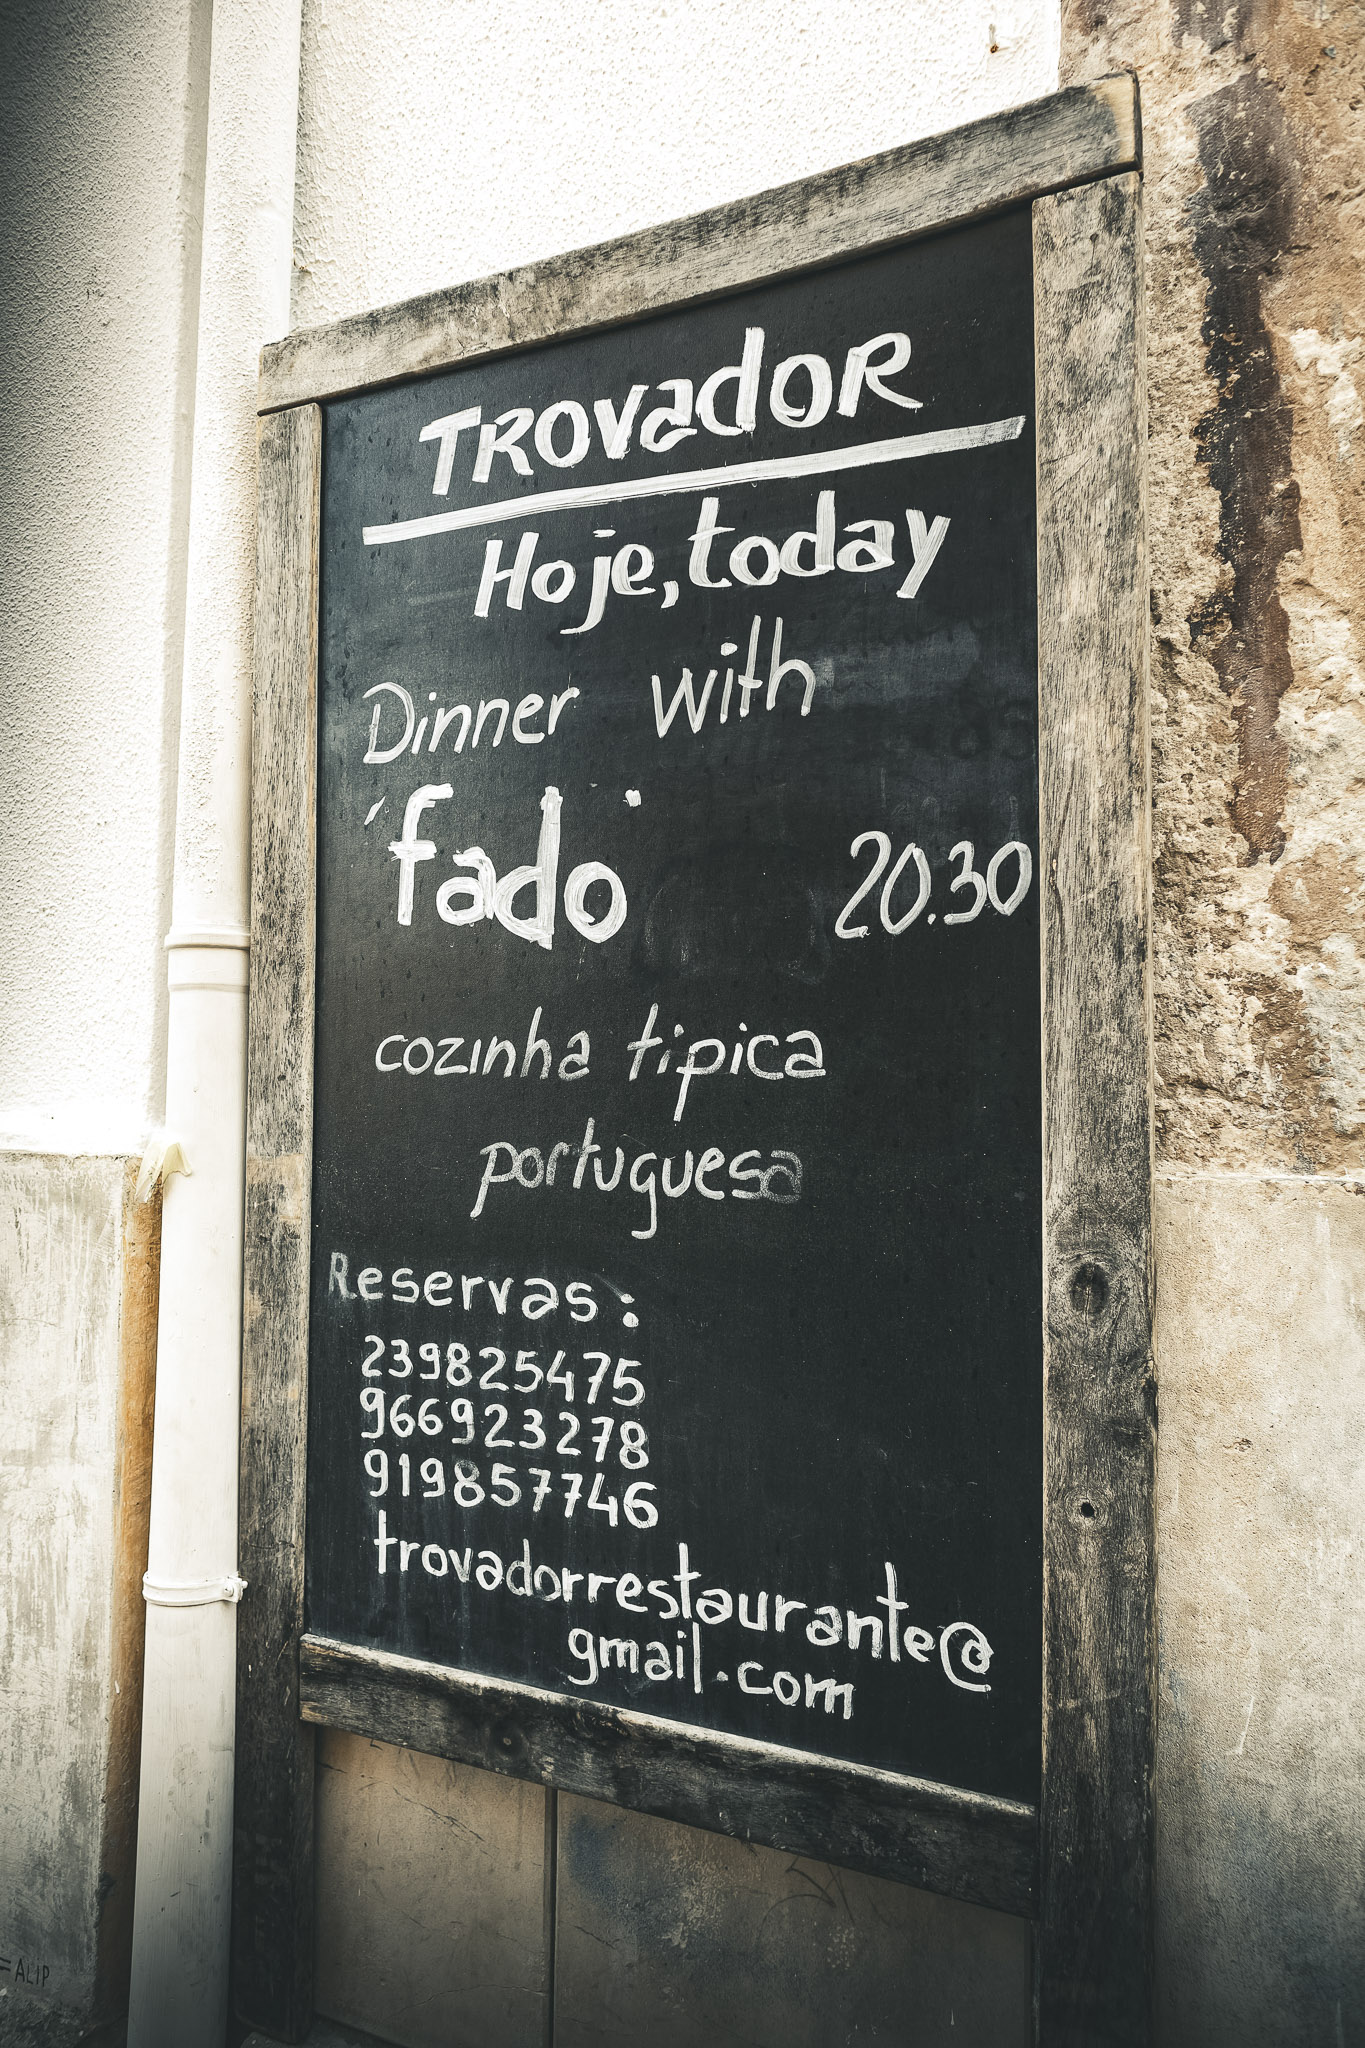 TROVadOR
Hoje, today
Dinner with
'fado' 20.30
cozinha tipica
portuguesa
Reservas:
239825475
966923278
919857746
trovadorrestaurante@
gmail.com
=ALIP